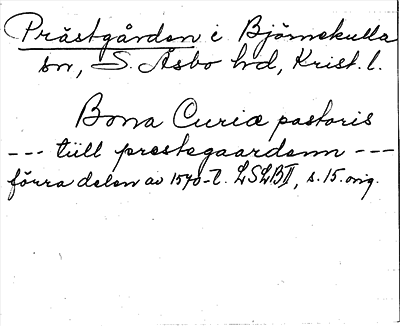 Prästgården i Björnekulla
sn, S. Åsbo hd, Krist. l.
Bona Curiæ pastoris
--- tiill prestegaardenn ---
förra delen av 1540-t. LSLBII, s. 15. orig.